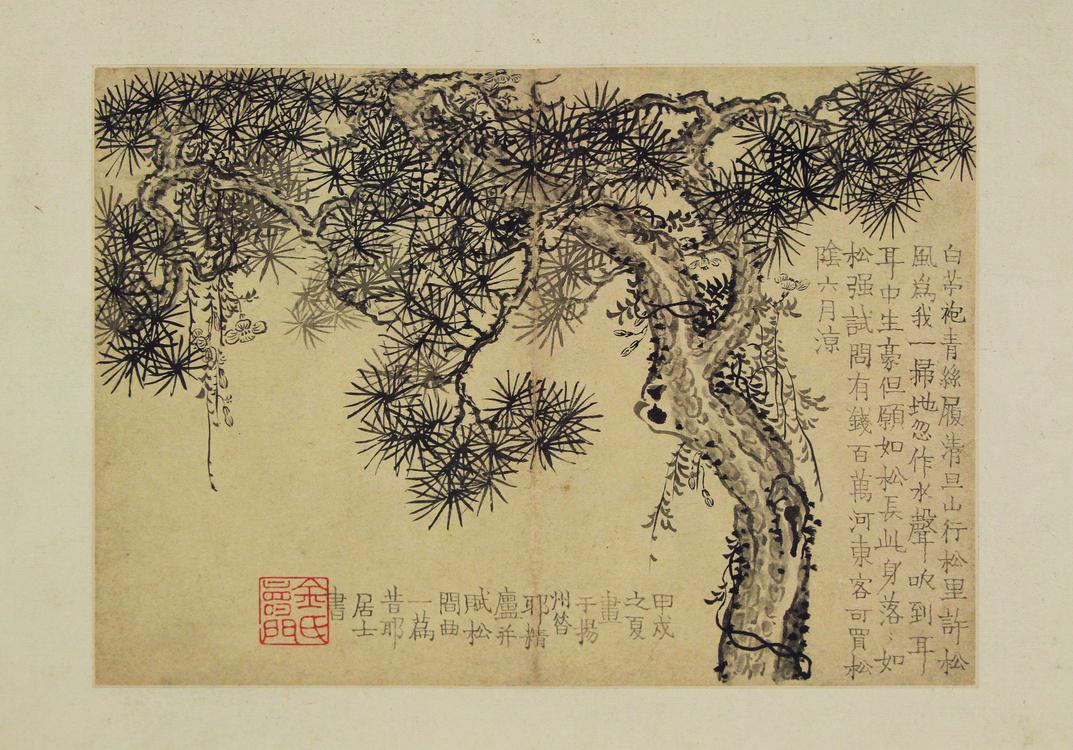 白苧袍青絲履清旦山行松里許松
風為我一掃地忽作水聲吹到耳
耳中生豪但願如松長此身落落如
松强試問有錢百萬河東客可買松
陰六月涼
甲戌
之夏
畫
于揚
州昝
耶精
廬并
賦松
間曲
一蒍
昔耶
居士
書
金氏